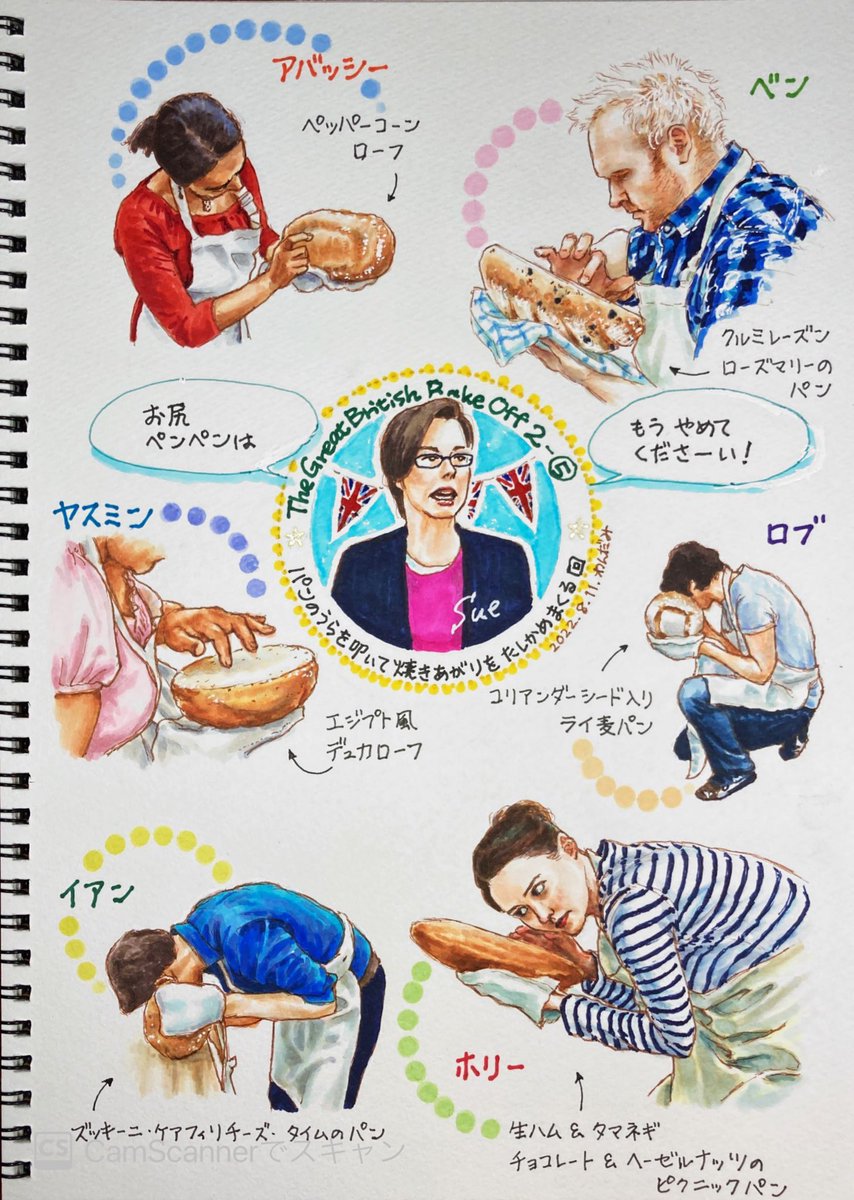 アバッシー
ペッパーコーン
ローフ
ベン
クルミレーズン
ローズマリーの
パン
お尻
ペンペンは
The Great British Bake Off 2-⑤
もう やめて
くださーい!
ヤスミン
Sue
パンのうらを叩いて焼きあがりをたしかめまくる回
2022.8.11.
ロブ
エジプト風
デュカローフ
コリアンダーシード入り
ライ麦パン
イアン
ホリー
ズッキーニ・ケアフィリチーズ・タイムのパン
生ハム & タマネギ
チョコレート & ヘーゼルナッツの
ピクニックパン
CS CamScannerでスキャン